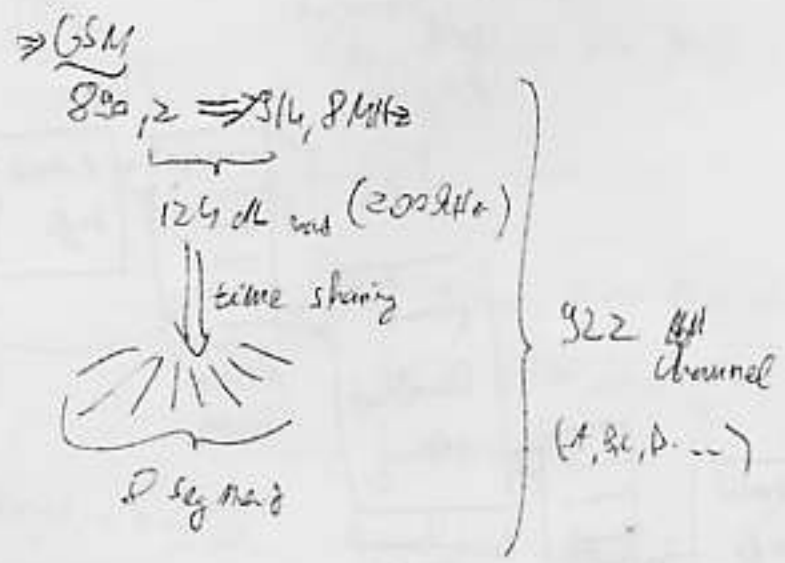 ⇒ GSM
890,2 ⇒ 914,8 MHz
124 ch (200kHz)
time sharing
8 segment
922
Channel
(A, B, C, D...)